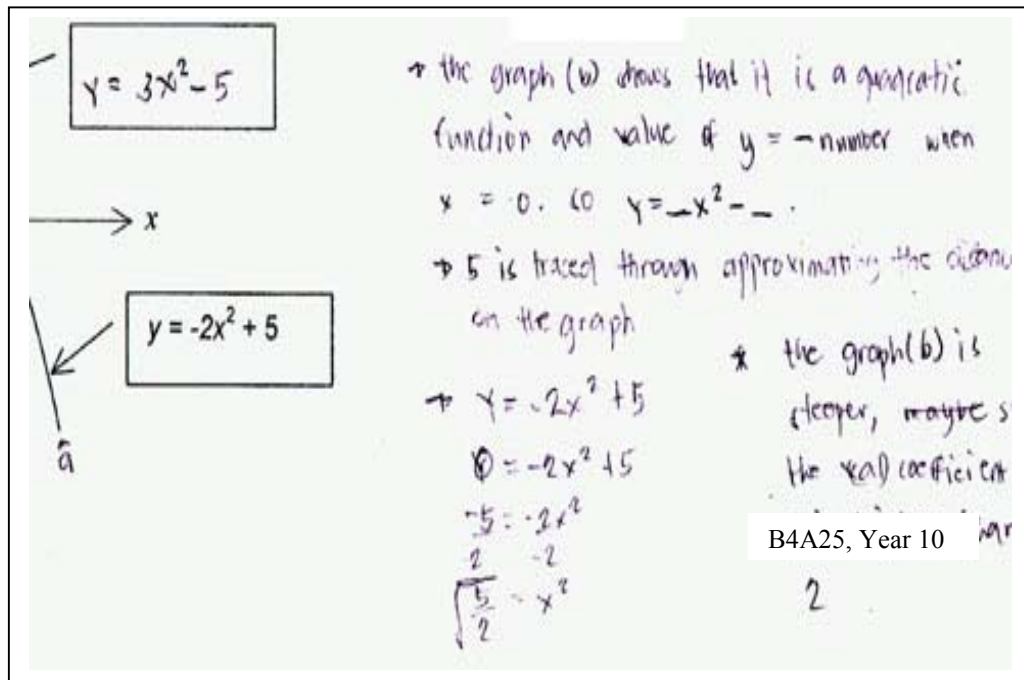 y = 3x² - 5
→ the graph (b) shows that it is a quadratic
function and value of y = - number when
x = 0. so y = _x² - _ .
→ 5 is traced through approximating the
on the graph
x
y = -2x² + 5
a
→ y = -2x² + 5
0 = -2x² + 5
-5 = -2x²
2 -2
√5/2 = x²
* the graph(b) is
steeper, maybe s
the coefficient
B4A25, Year 10
2